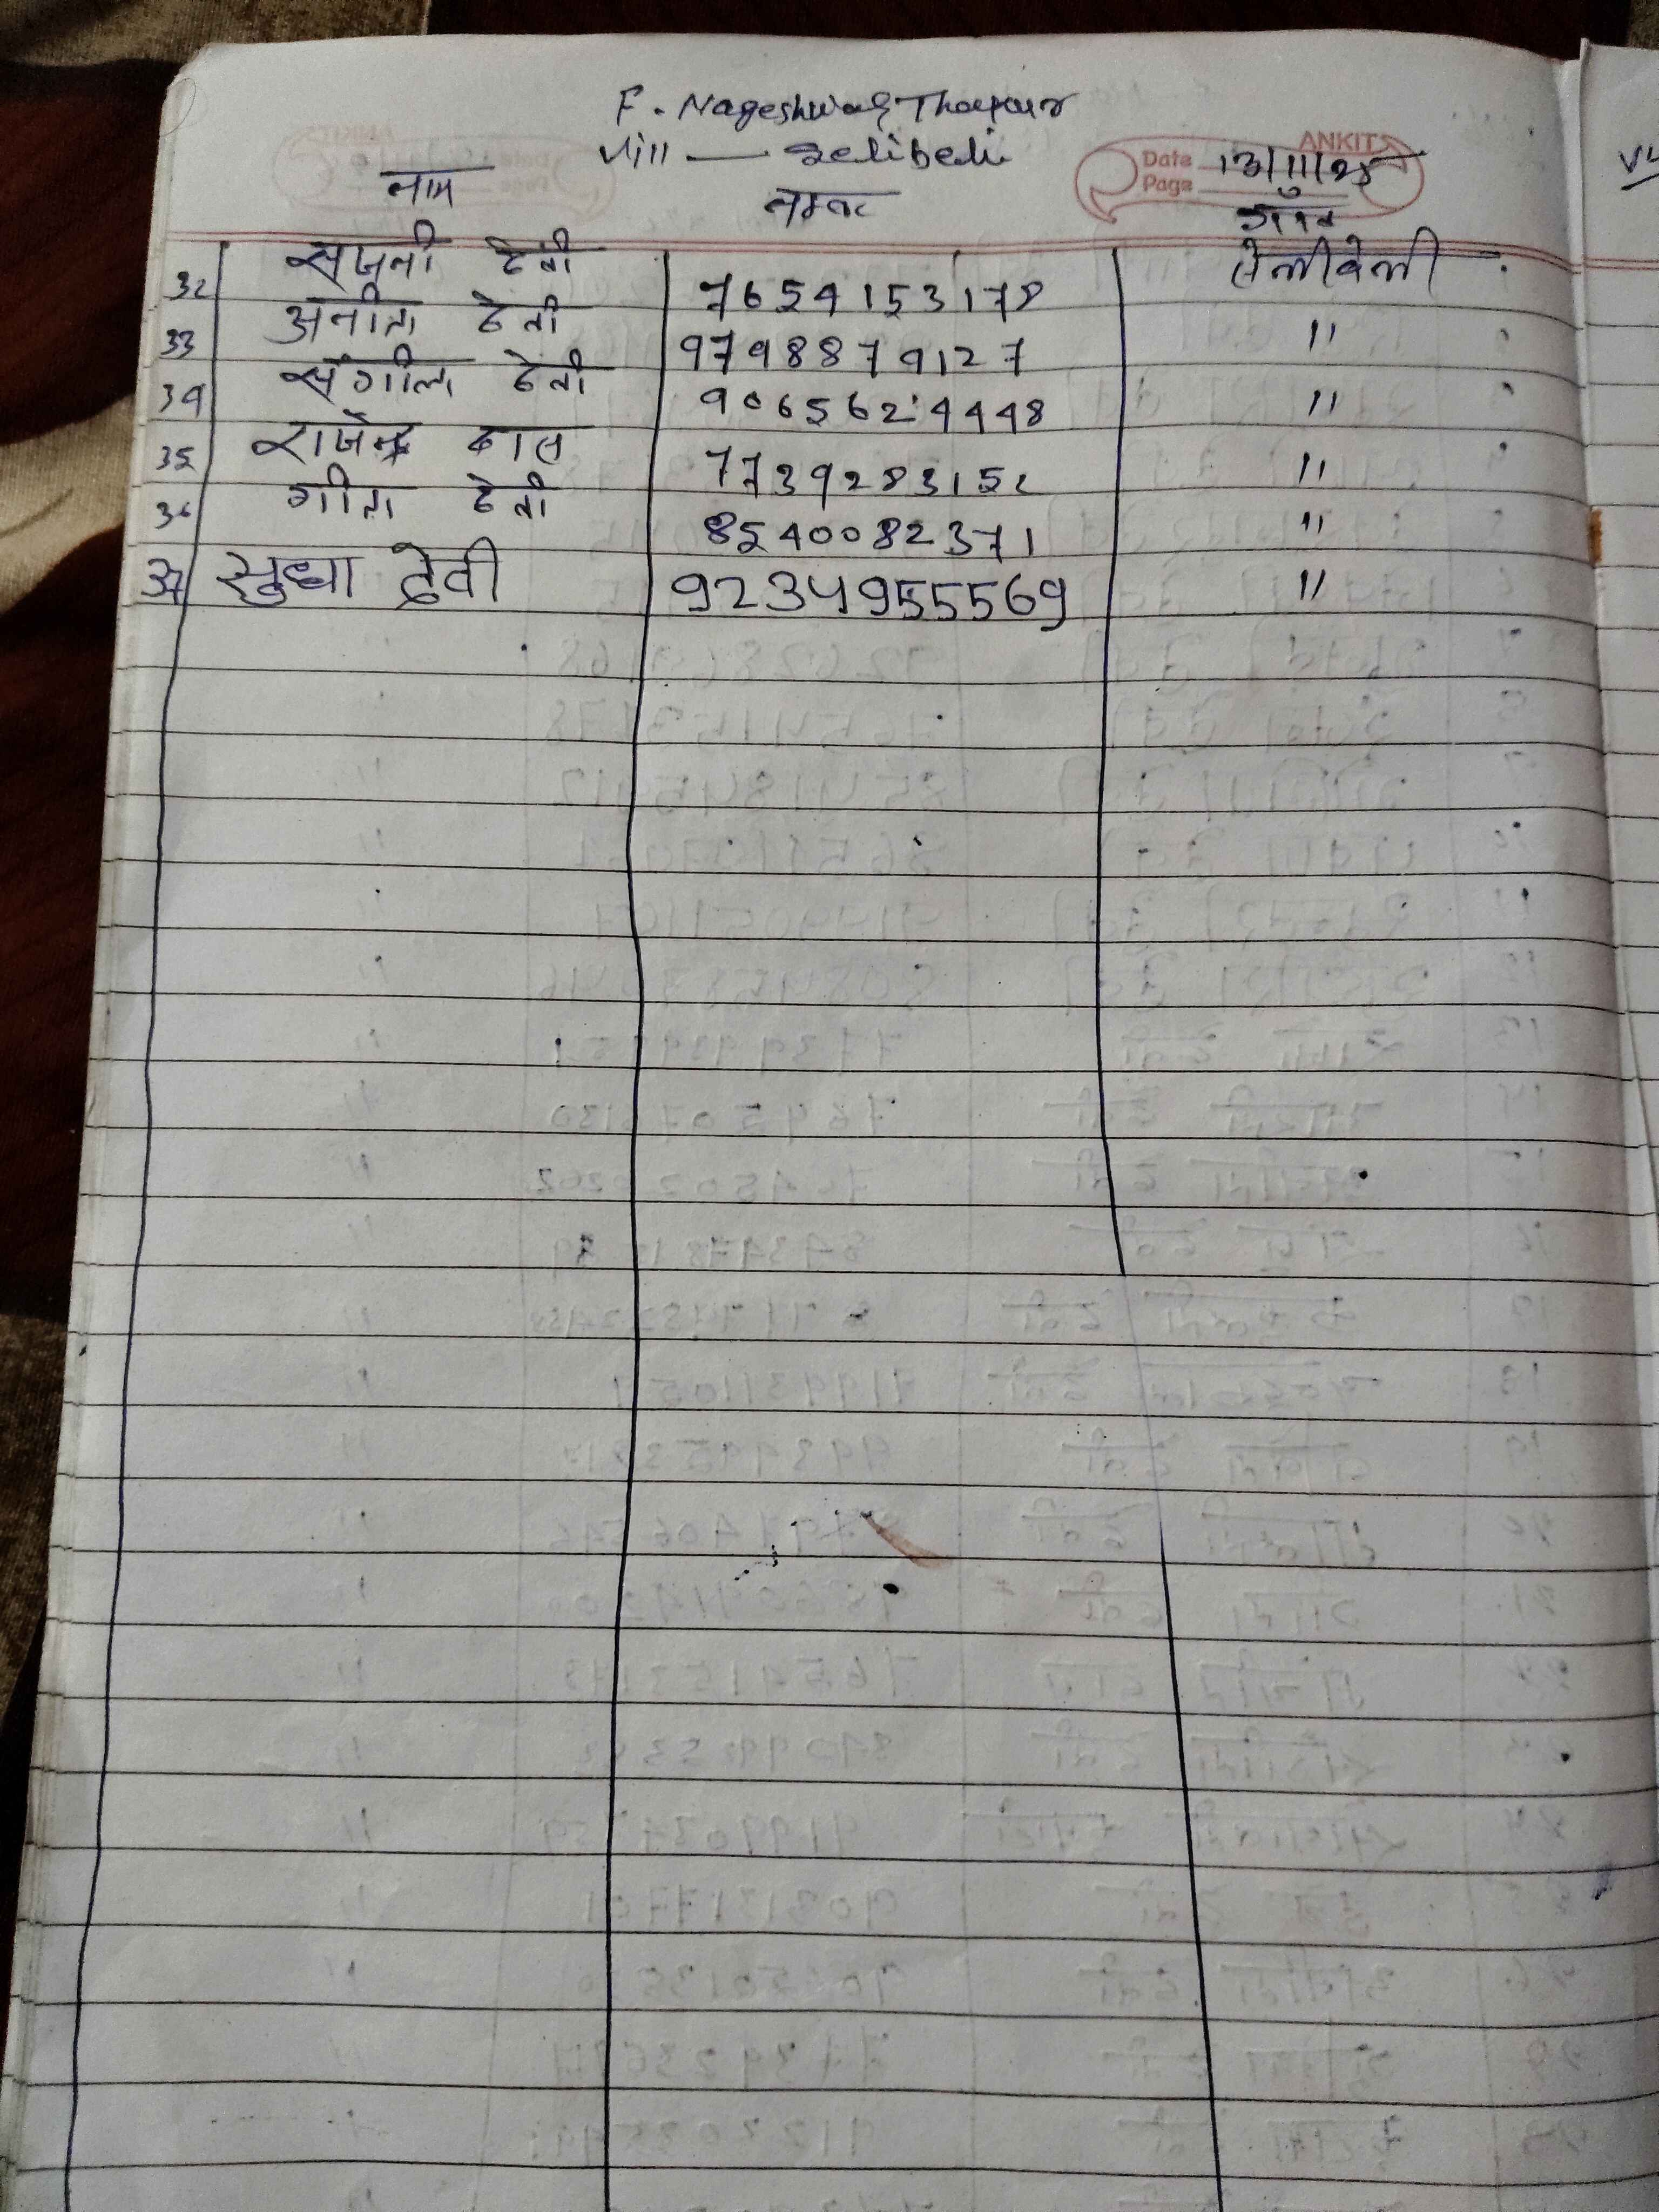 F. Nageshwar Thakur
Vill — Selibeli
ANKIT
Date 13/11/25
Page
नाम नम्बर गाँव
32 सजनी देवी 7654153178 सेलीबेली
33 अनीता देवी 9798879127 "
34 संगीता देवी 9065624448 "
35 राजेन्द्र दास 7739283152 "
36 गीता देवी 8540082371 "
37 सुधा देवी 9234955569 "